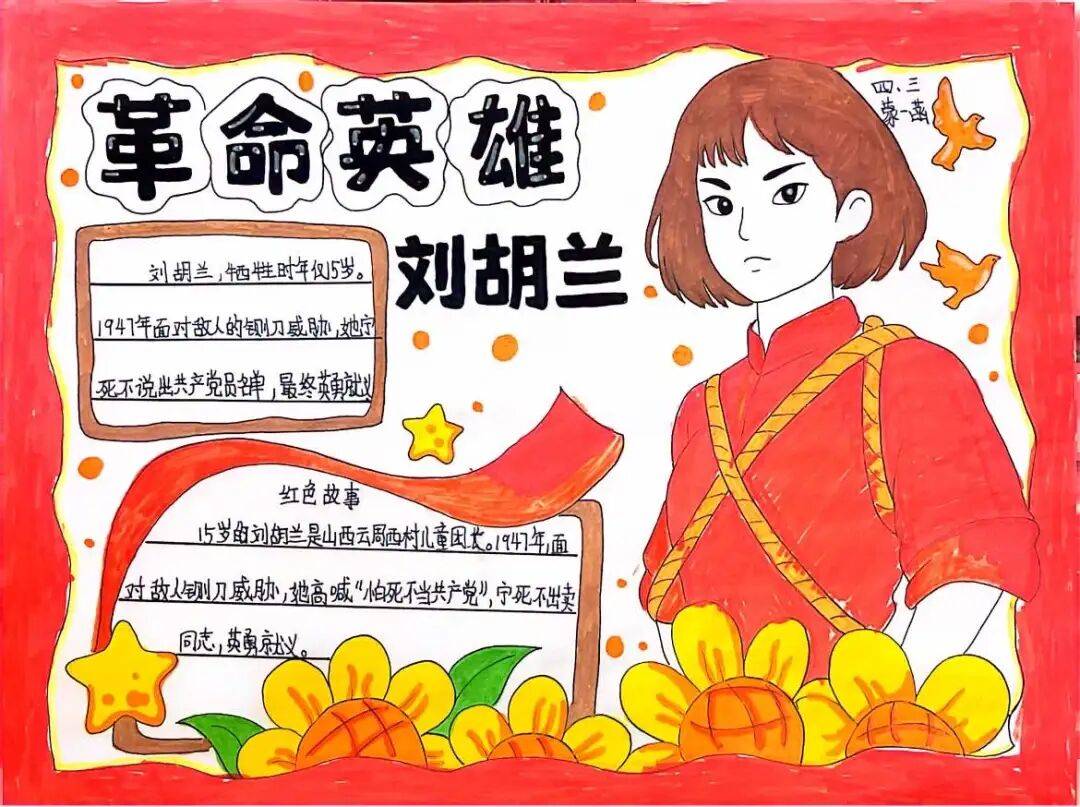 革命英雄
四、三
蒙一菡
刘胡兰
刘胡兰，牺牲时年仅15岁。
1947年面对敌人的铡刀威胁，她宁
死不说出共产党员名单，最终英勇就义
红色故事
15岁的刘胡兰是山西云周西村儿童团长。1947年，面
对敌人铡刀威胁，她高喊“怕死不当共产党”，宁死不出卖
同志，英勇就义。